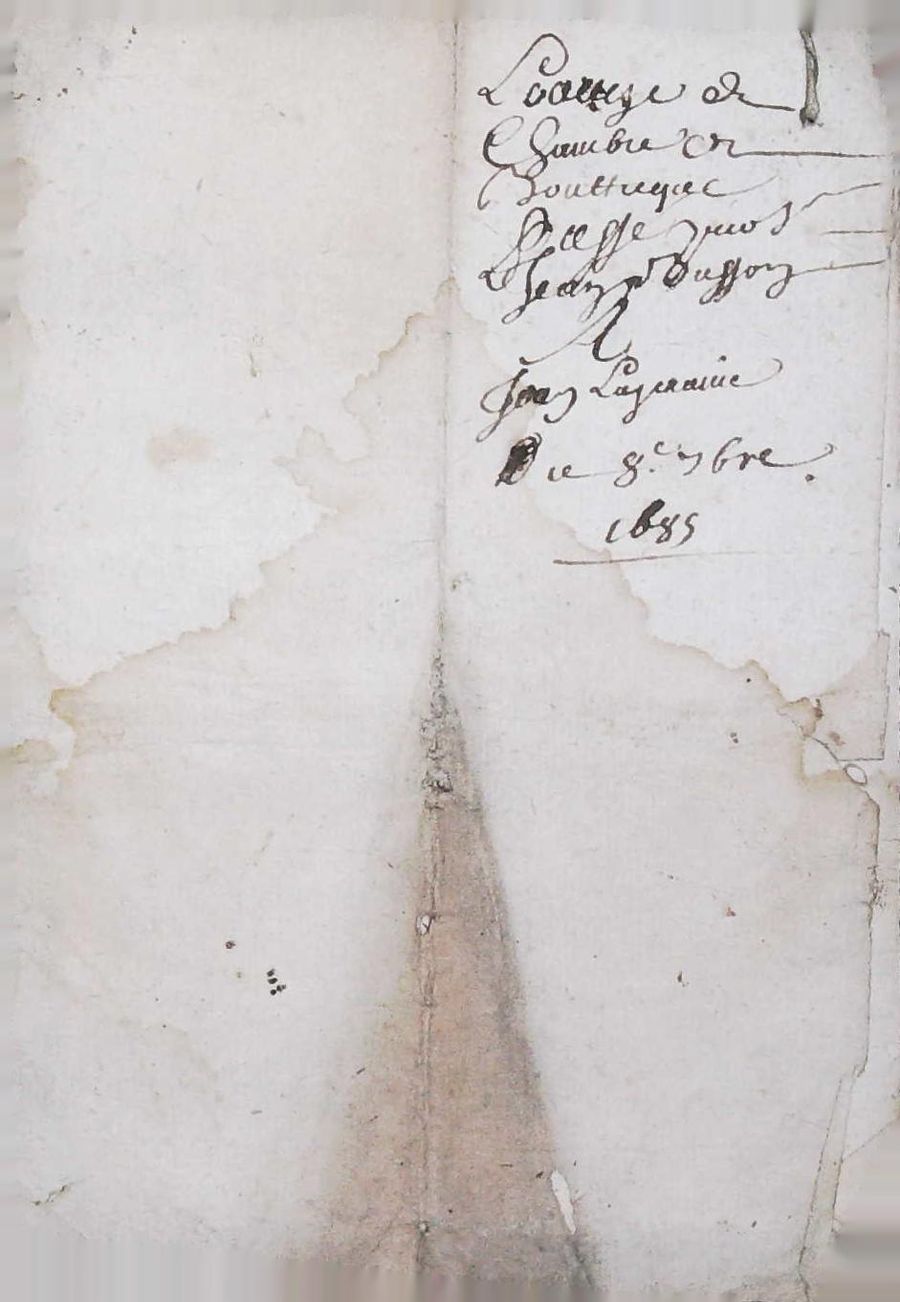 Louage de
Chambre et
Bouttique
Passe par
Jean Dusson
A
Jean Lagrauie
Du 8e 7bre
1685